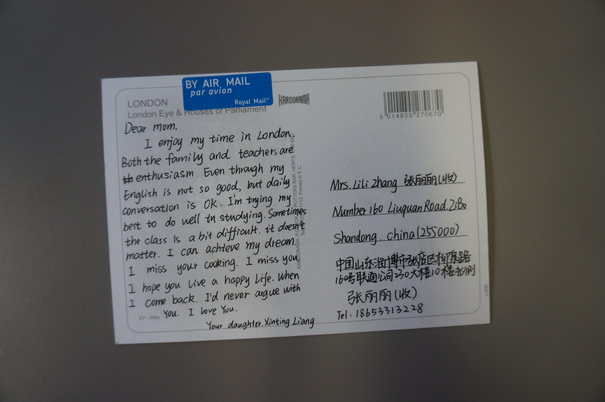 BY AIR MAIL
par avion
Royal Mail
LONDON
London Eye & Houses of Parliament
Dear mom,
I enjoy my time in London.
Both the family and teachers are
enthusiasm. Even through my
English is not so good, but daily
conversation is OK. I'm trying my
best to do well in studying. Sometimes
the class is a bit difficult. it doesn't
matter. I can achieve my dream
I miss your cooking. I miss you.
I hope you live a happy life. When
I come back. I'd never argue with
you. I love you.
Your daughter. Xinting Liang
5 014835 270670
Mrs. Lili Zhang 张丽丽(收)
Number 160 Liuquan Road. Zibo
Shandong. China (255000)
中国山东淄博市张店区柳泉路
160号联通公司230大楼10楼
张丽丽(收)
Tel: 18653313228